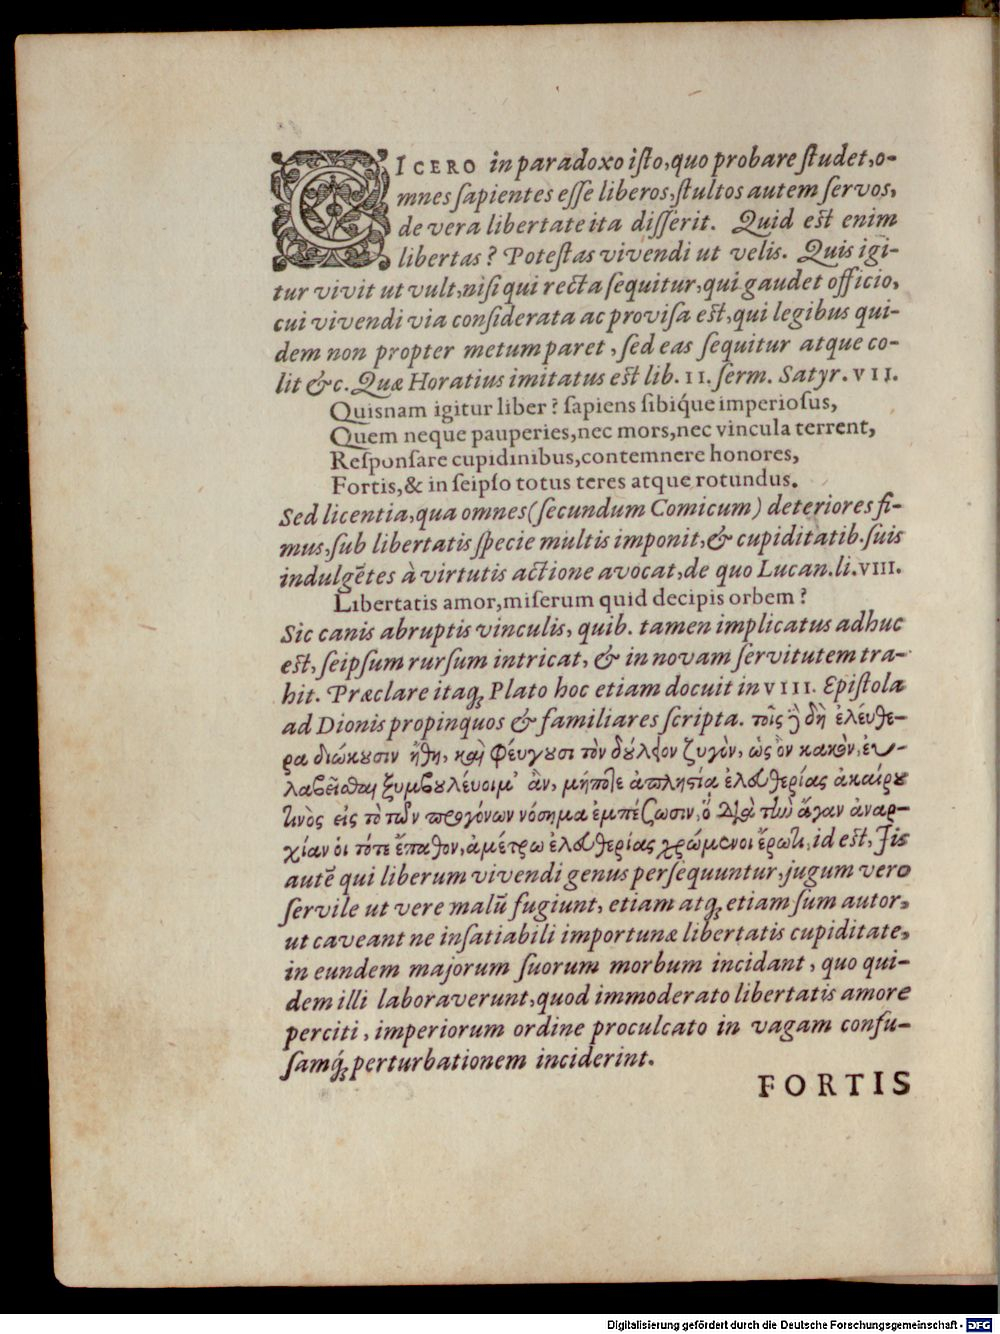 CICERO in paradoxo iſto, quo probare ſtudet, o-
mnes ſapientes eſſe liberos, ſtultos autem ſervos,
de vera libertate ita diſſerit. Quid eſt enim
libertas? Poteſtas vivendi ut velis. Quis igi-
tur vivit ut vult, niſi qui recta ſequitur, qui gaudet officio,
cui vivendi via conſiderata ac proviſa eſt, qui legibus qui-
dem non propter metum paret, ſed eas ſequitur atque co-
lit &c. Quæ Horatius imitatus eſt lib. II. ſerm. Satyr. VII.
Quisnam igitur liber? ſapiens ſibiq́ue imperioſus,
Quem neque pauperies, nec mors, nec vincula terrent,
Reſponſare cupidinibus, contemnere honores,
Fortis, & in ſeipſo totus teres atque rotundus.
Sed licentia, qua omnes (ſecundum Comicum) deteriores fi-
mus, ſub libertatis ſpecie multis imponit, & cupiditatib. ſuis
indulgẽtes à virtutis actione avocat, de quo Lucan. li. VIII.
Libertatis amor, miſerum quid decipis orbem?
Sic canis abruptis vinculis, quib. tamen implicatus adhuc
eſt, ſeipſum rurſum intricat, & in novam ſervitutem tra-
hit. Præclare itaq; Plato hoc etiam docuit in VIII. Epiſtola
ad Dionis propinquos & familiares ſcripta. τοῖς ἢ δὴ ἐλεύθε-
ρα διώκουσιν ἤθη, καὶ φέυγουσι τὸν δούλειον ζυγὸν, ὡς ὂν κακὸν, ἐυ-
λαβεῖσθαι ξυμβουλέυοιμ' ἂν, μήποτε ἀπλησίᾳ ἐλευθερίας ἀκαίρου
τινὸς εἰς τὸ τῶν προγόνων νόσημα ἐμπέσωσιν, ὅ διὰ τὴν ἄγαν ἀναρ-
χίαν ὁι τότε ἔπαθον, ἀμέτρω ἐλευθερίας χρώμενοι ἔρωτι, id eſt, Iis
autẽ qui liberum vivendi genus perſequuntur, jugum vero
ſervile ut vere malũ fugiunt, etiam atq; etiam ſum autor,
ut caveant ne inſatiabili importunæ libertatis cupiditate,
in eundem majorum ſuorum morbum incidant, quo qui-
dem illi laboraverunt, quod immoderato libertatis amore
perciti, imperiorum ordine proculcato in vagam confu-
ſamq́; perturbationem inciderint.
FORTIS
Digitalisierung gefördert durch die Deutsche Forschungsgemeinschaft - DFG